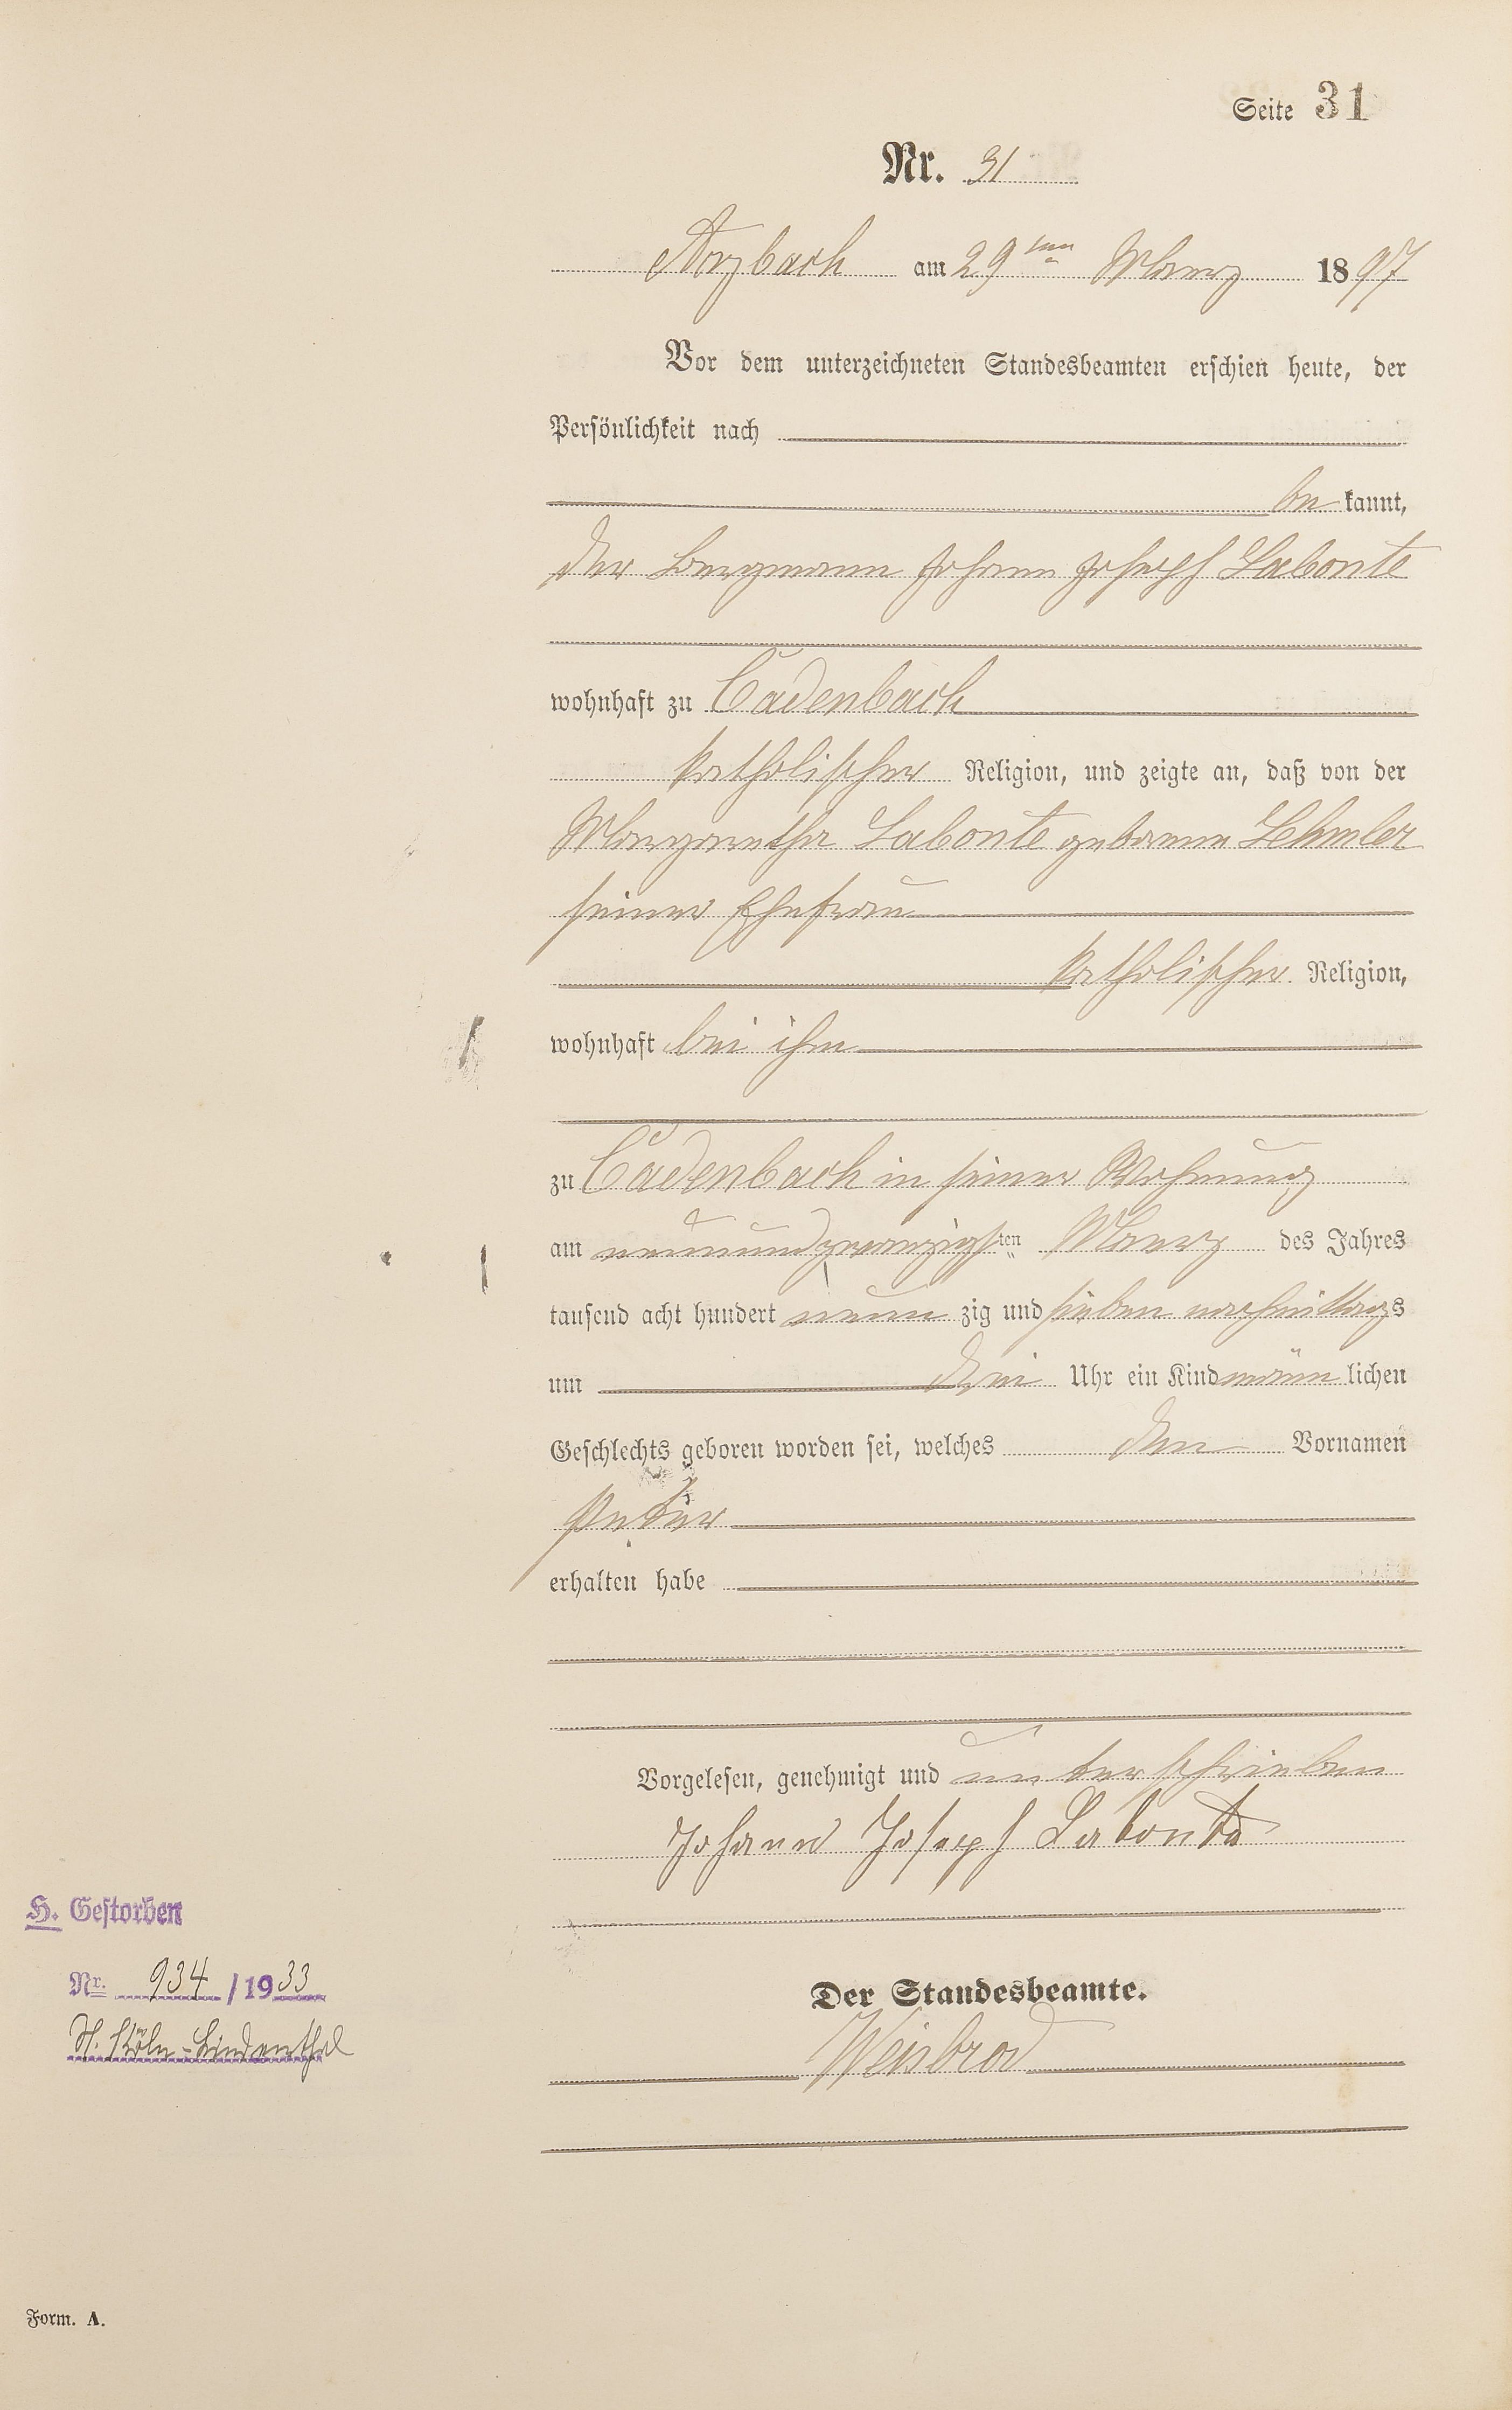 Seite 31
Nr. 31
Arzbach am 29ten Maerz 1897
Vor dem unterzeichneten Standesbeamten erschien heute, der
Persönlichkeit nach
be kannt,
der Bergmann Johann Joseph Labonte
wohnhaft zu Cadenbach
katholischer Religion, und zeigte an, daß von der
Margaretha Labonte geborene Lehmler
seiner Ehefrau
katholischer Religion,
wohnhaft bei ihm
zu Cadenbach in seiner Wohnung
am neunundzwanzigsten Maerz des Jahres
tausend acht hundert neun zig und sieben nachmittags
um drei Uhr ein Kind männ lichen
Geschlechts geboren worden sei, welches den Vornamen
Peter
erhalten habe
Vorgelesen, genehmigt und unterschrieben
Johann Joseph Labonte
H. Gestorben
Nr. 934 / 1933
St. Köln-Lindenthal
Der Standesbeamte.
Weisbrod
Form. A.